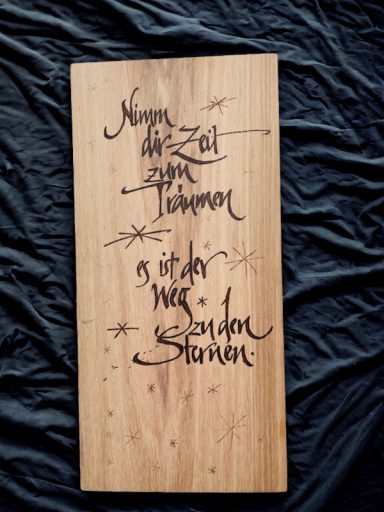 Nimm
dir Zeit
zum
Träumen
es ist der
Weg
zu den
Sternen.